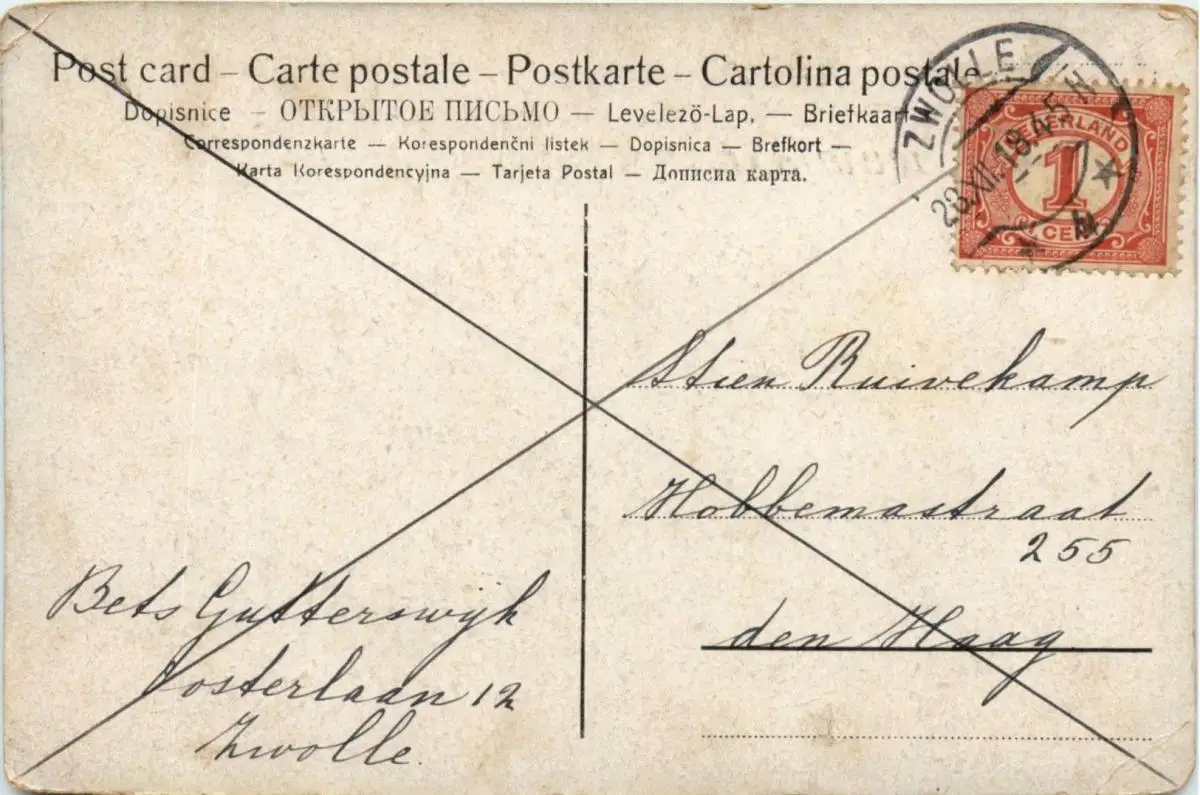 Post card – Carte postale – Postkarte – Cartolina postale
Dopisnice – ОТКРЫТОЕ ПИСЬМО – Levelezö-Lap, – Briefkaart
Correspondenzkarte – Korespondenčni listek – Dopisnica – Brefkort –
Karta Korespondencyjna – Tarjeta Postal – Дописна карта.
ZWOLLE
28.XII.18 4-5 N
NEDERLAND
1
CENT
Stien Ruivekamp
Hobbemastraat
255
den Haag
Bets Gutterswijk
Oosterlaan 12
Zwolle.